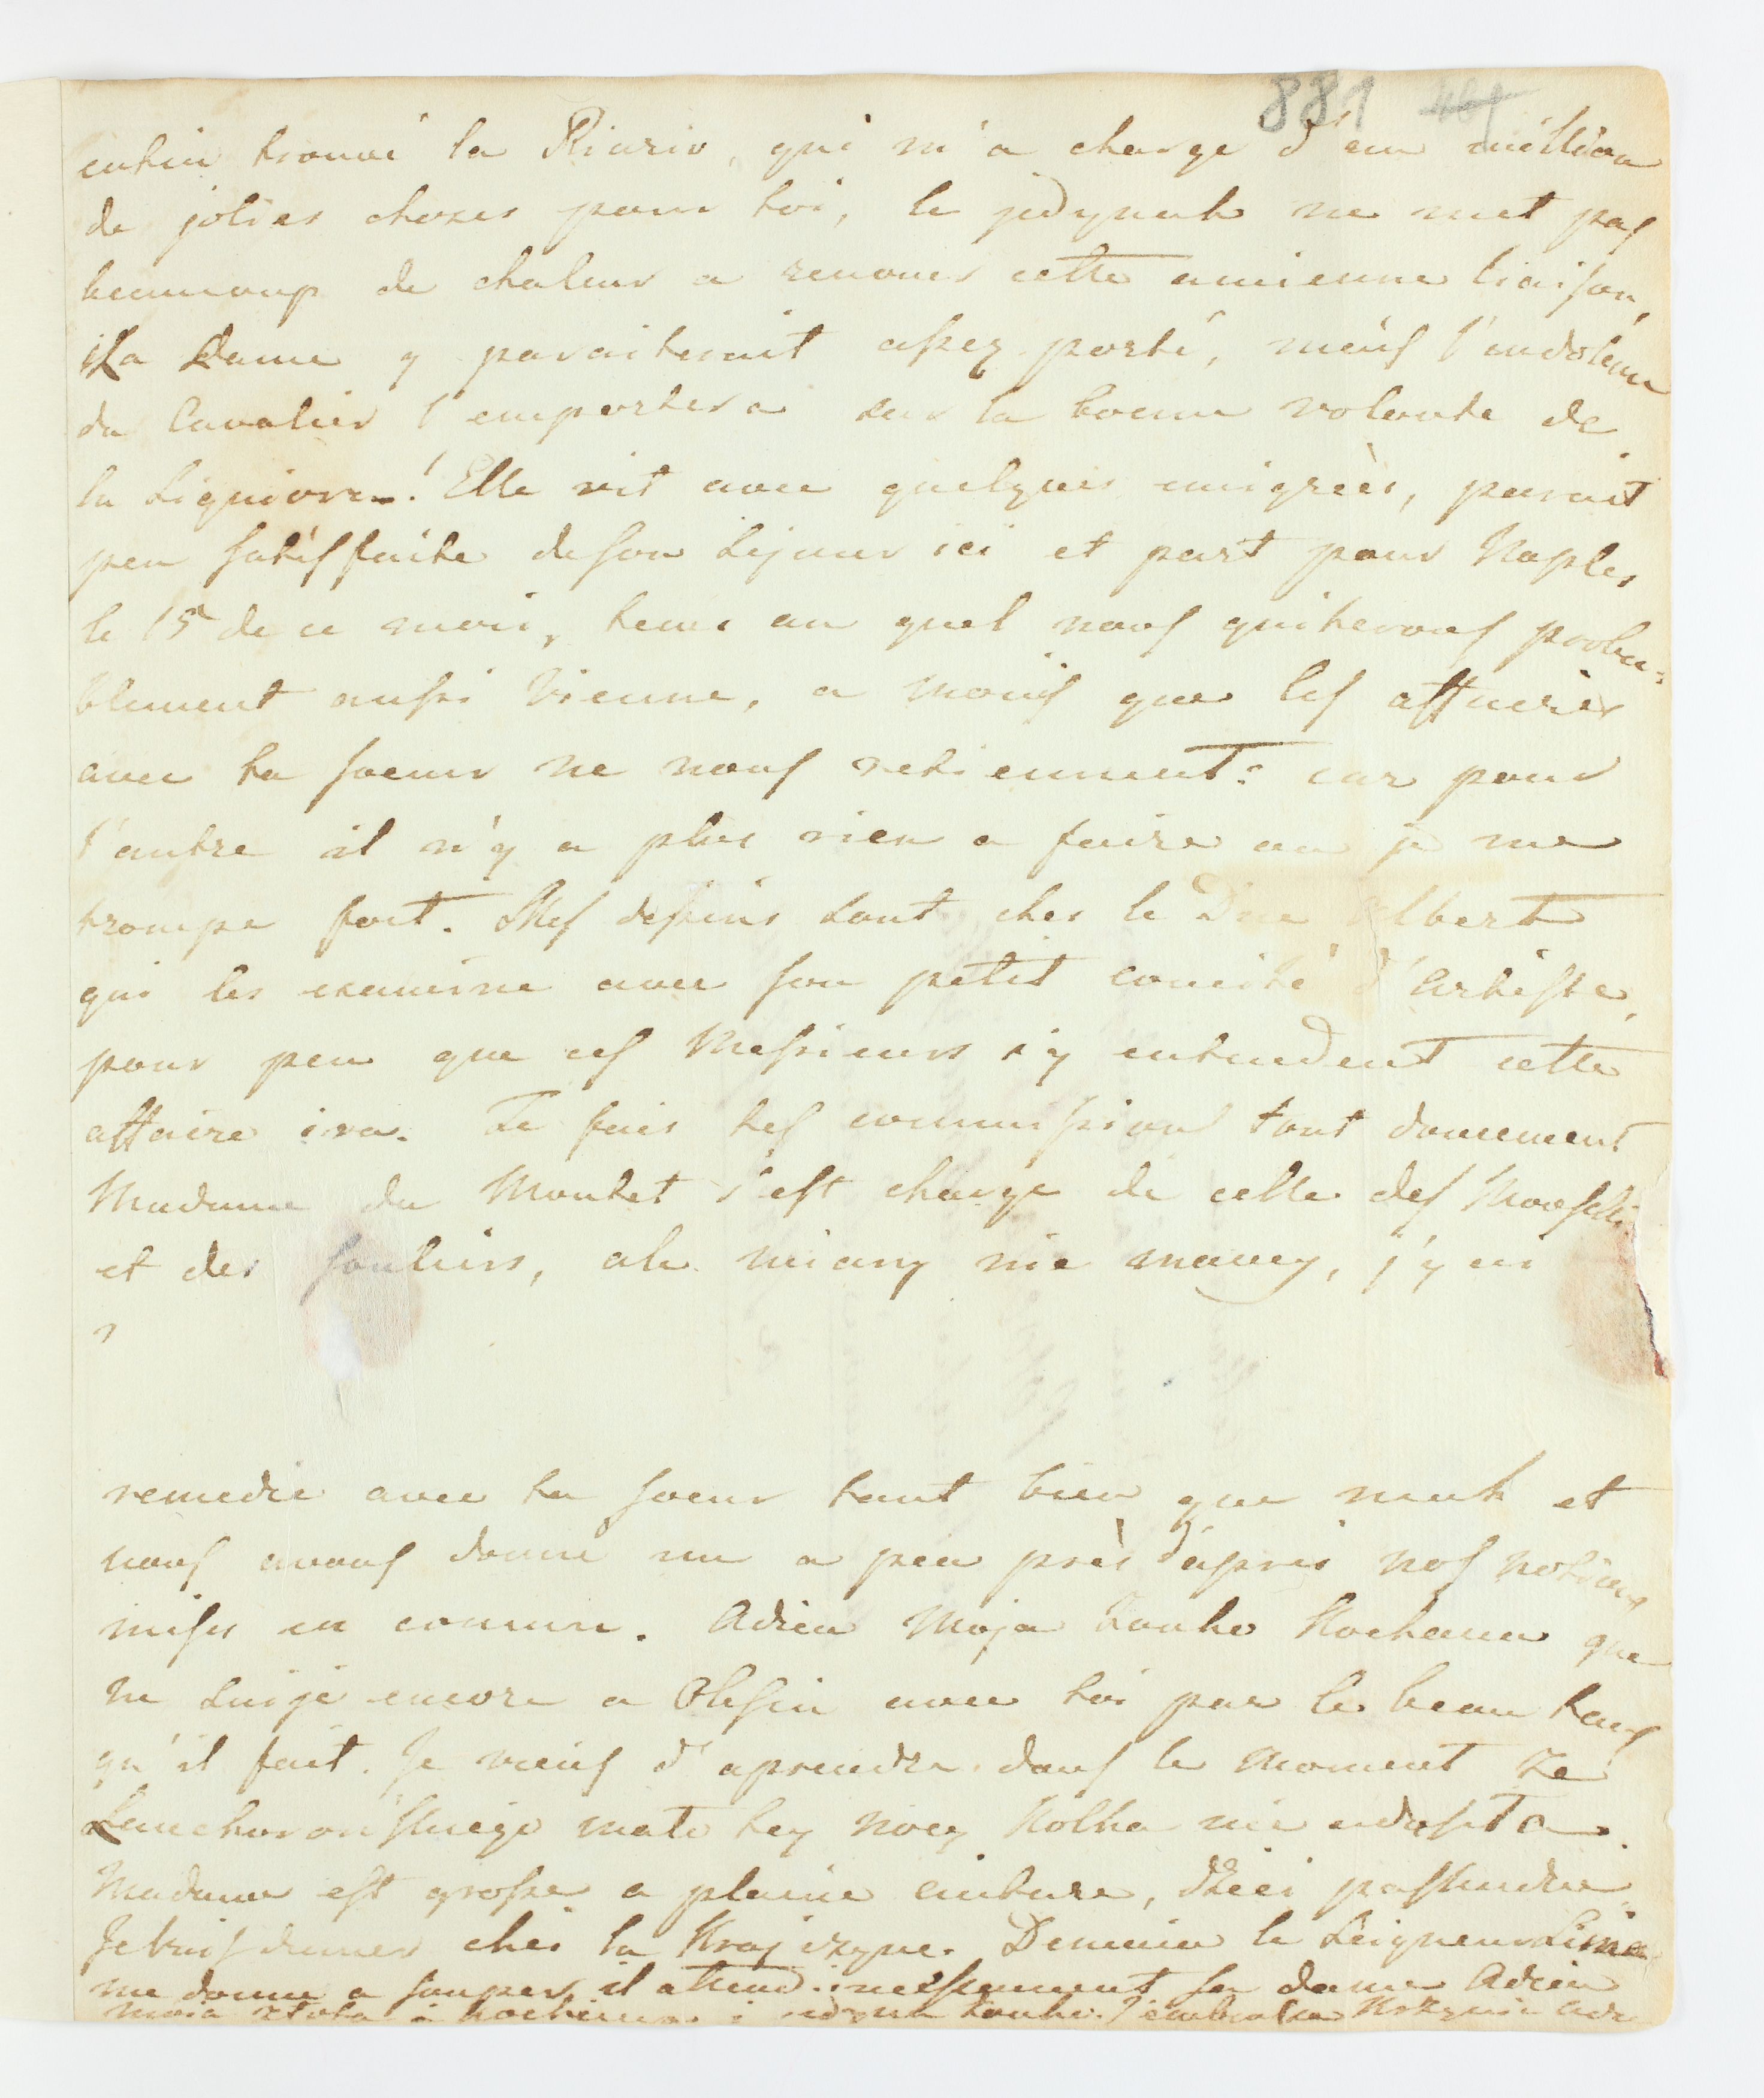 881 461
enfin trouvé la Riario, qui m'a charge d'un million
de jolies choses pour toi, le jedynak ne met pas
beaucoup de chaleur a renouer cette ancienne liaison,
La Dame y paraiterait assez porté, mais l'indolence
du Cavalier l'emportera sur la bonne volonte de
la Signiora! Elle vit avec quelques emigrées, parait
peu satisfaite de son sejour ici et part pour Naples
le 15 de ce mois, tems au quel nous quiterons proba:
blement aussi Vienne, a moins que les affaires
avec ta soeur ne nous retiennent: car pour
l'autre il n'y a plus rien a faire ou je me
trompe fort. Mes dessins sont ches le Duc Albert
qui les examine avec son petit comité d'Artiste,
pour peu que ces Messieurs s'y entendent cette
affaire ira. Je fais tes commissions tout doucement
Madame du Montet s'est chargé de celle des
et des souliers, ale miary nie mamy, j'y ai
remedie avec ta soeur tant bien que mal et
nous avons donné un a peu près d'après nos notions
mises en comun. Adieu Moja Louho Kochana que
ne suisje encore a Olesin avec toi par le beau tems
qu'il fait. Je viens d'aprendre dans le moment ze
mato tey nocy Kolka nie udusita.
Madame est grosse a pleine ceinture,
Je vais diner chez la Krajczyne. Demain le Seigneur Lima
me donne a souper, il attend incessament sa dame Adieu
moia ztota i kochana i jedyna Louho. J'embrasse Krzynia adi